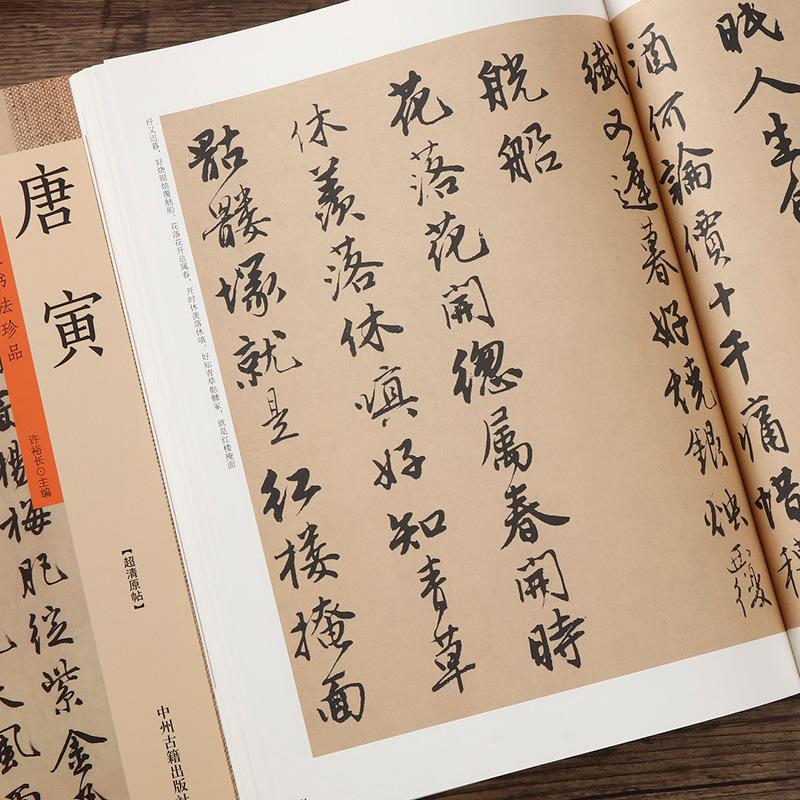 人生
酒何論價十千痛惜
纖又遲暮好燒銀燭覆
觥船
花落花開總属春開時
休羨落休嗔好知青草
骷髏塚就是红楼掩面
纤又迟暮，好烧银烛覆觥船。花落花开总属春，开时休羡落休嗔。好知青草骷髅冢，就是红楼掩面
唐寅
书法珍品
许裕长⊙主编
【超清原帖】
中州古籍出版社
楊梅肥綻紫金
風